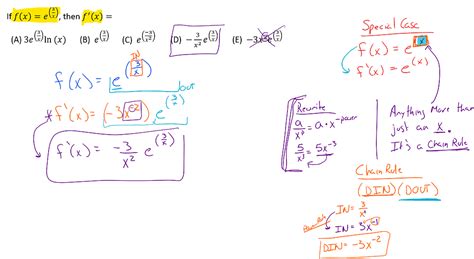 If f(x) = e^(3/x), then f'(x) =
(A) 3e^(3/x) ln (x) (B) e^(3/x) (C) e^(-3/x²) (D) -3/x² e^(3/x) (E)
IN
f(x) = e^(3/x)
out
*f'(x) = (-3x^-2) · e^(3/x)
f'(x) = -3/x² e^(3/x)
Special Case
f(x) = e^x
f'(x) = e^(x)
Rewrite
= a·x^-power
= 5x^-3
Anything more than
just an x.
It's a Chain Rule
Chain Rule
(DIN)(DOUT)
IN = 3/x
IN = 3x^-1
DIN = -3x^-2